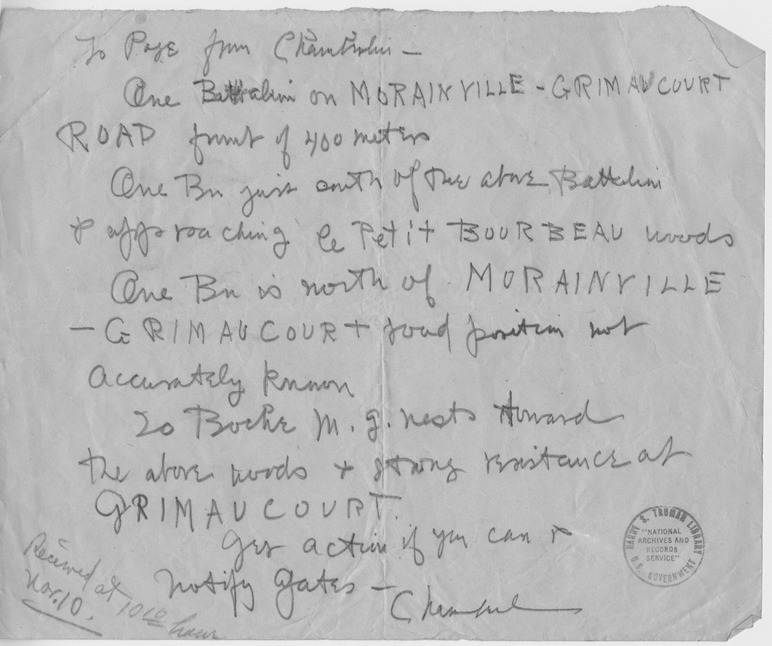 To Page from Chamberlin —
One Battalion on MORAINVILLE - GRIMAUCOURT
ROAD front of 400 meters
One Bn just south of the above Battalion
& approaching le Petit BOURBEAU woods
One Bn is north of MORAINVILLE
- GRIMAUCOURT road position not
accurately known
20 Boche M.g. nests
the above woods & strong resistance at
GRIMAUCOURT.
Get action if you can &
notify Gates —
Received at 10 hour
Nov. 10.
HARRY S. TRUMAN LIBRARY
"NATIONAL
ARCHIVES AND
RECORDS
SERVICE"
U.S. GOVERNMENT